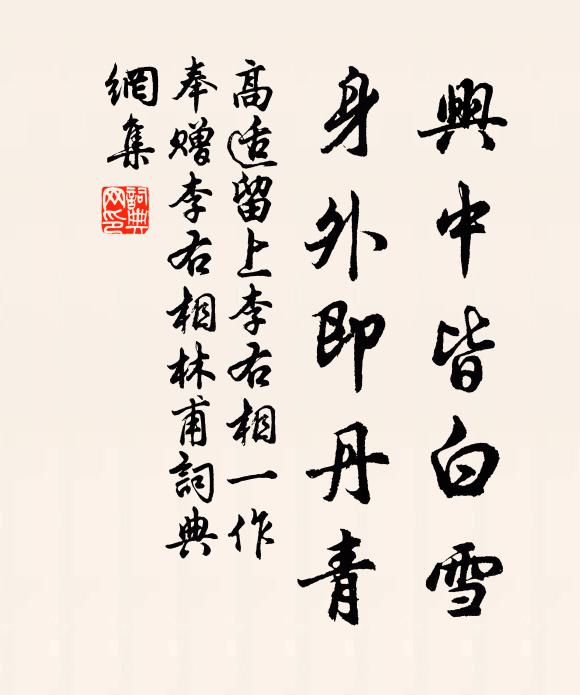 興中皆白雪
身外即丹青
高适留上李右相一作
奉贈李右相林甫詞典
網集
詞典網印